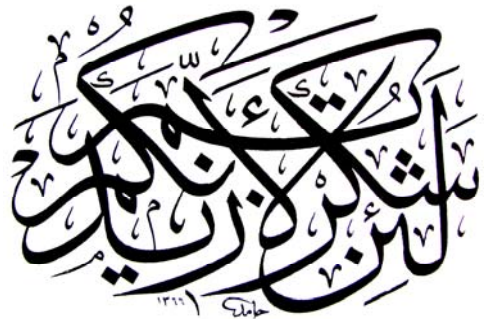 لَئِن شَكَرْتُمْ لَأَزِيدَنَّكُمْ
حامد ١٣٦٦